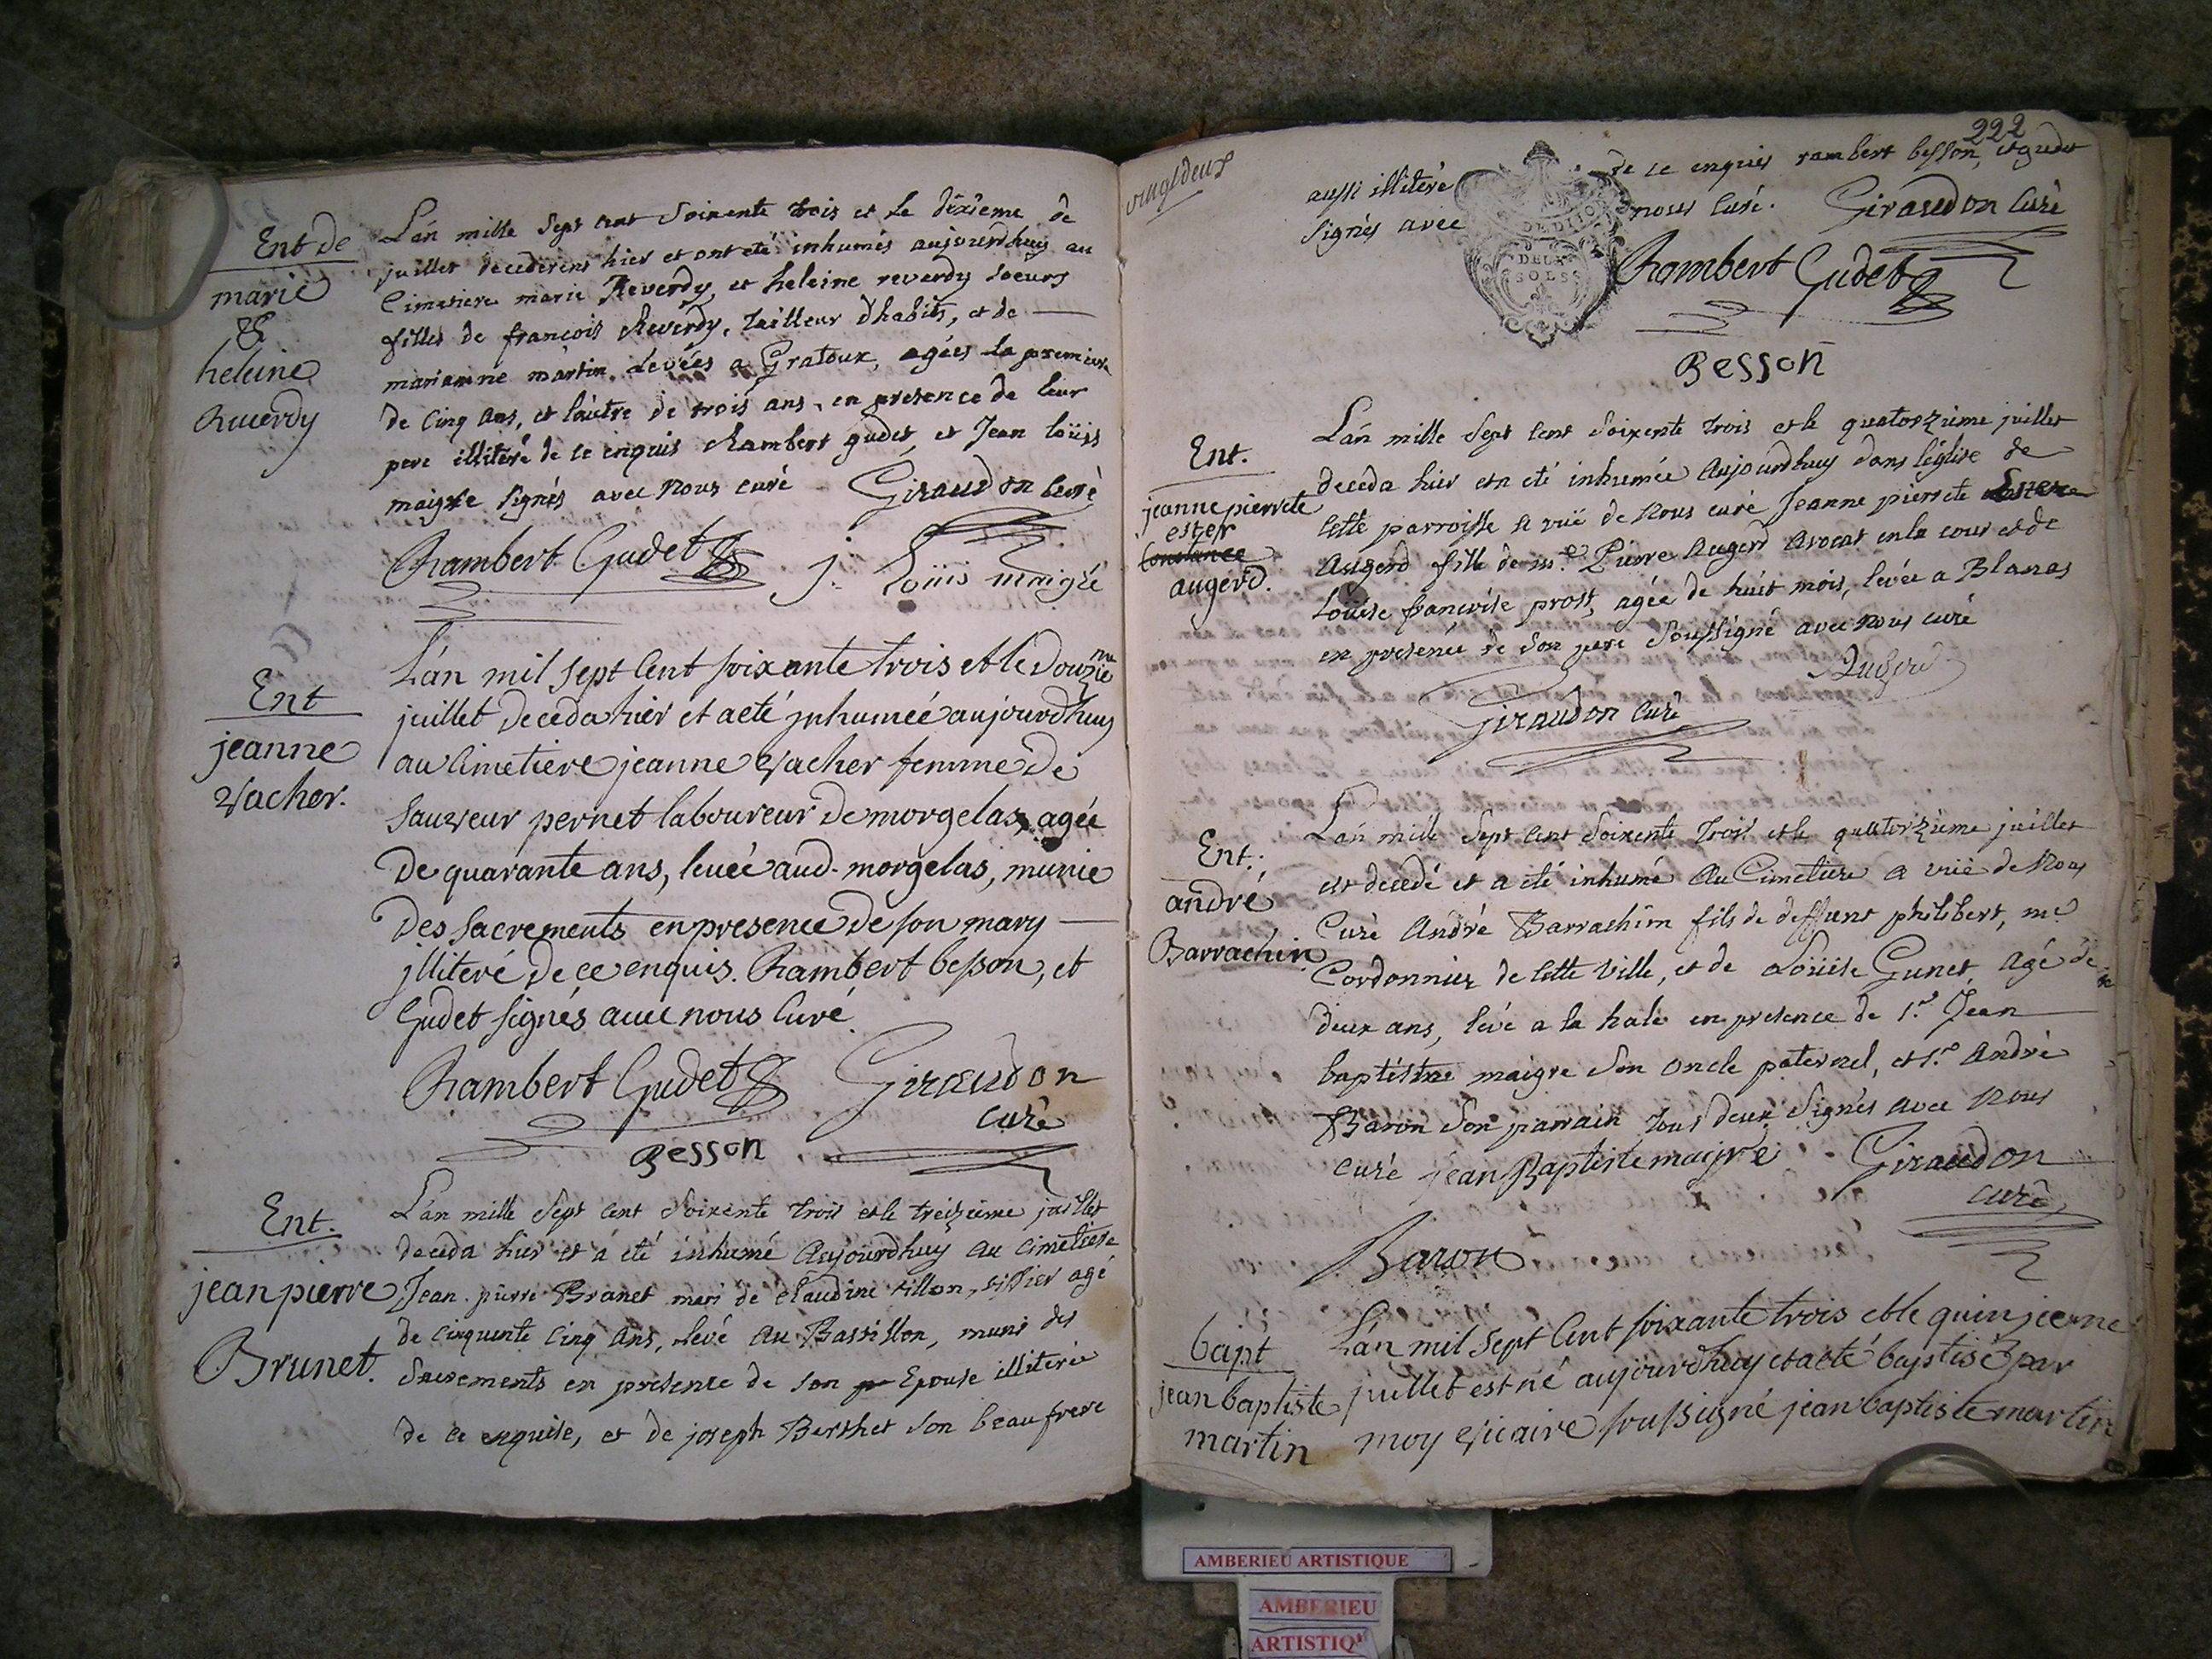 Ent de
marie
&
heleine
Reverdy
L'an mille Sept cent Soixente trois et le dixieme de
juillet decederent hier et ont eté inhumés aujourdhuy au
Cimetiere marie Reverdy, et heleine reverdy soeurs
filles de francois Reverdy, tailleur d'habits, et de
marianne martin, levées a Gratoux, agées la premiere
de cinq ans, et lautre de trois ans, en presence de leur
pere illiteré de ce enquis Rambert gudet, et Jean loüis
maigre signés avec nous curé Giraudon curé
Rambert Gudet j. Loüis maigré
Ent
jeanne
Vacher.
L'an mil sept Cent soixante trois et le douzieme
juillet deceda hier et a eté jnhumée aujourdhuy
au Cimetiere jeanne Vacher femme de
Sauveur pernet laboureur de morgelas, agée
de quarante ans, levée aud. morgelas, munie
des sacrements en presence de son mary
jlliteré de ce enquis. Rambert besson, et
Gudet signés avec nous Curé
Rambert Gudet Giraudon
curé
Besson
Ent.
jean pierre
Brunet.
L'an mille Sept cent Soixente trois et le treizieme juillet
deceda hier et a eté inhumé Aujourdhuy au cimetiere
Jean pierre Brunet mari de Claudine tillon, agé
de cinquente cinq ans, levé au Bassillon, muni des
Sacrements en presence de son Epouse illiterée
de ce enquise, et de joseph Berthet son beau frere
222
vingt deux
aussi illiteré de ce enquis rambert besson, et gudet
signés avec nous Curé. Giraudon Curé
DE DIJO
DEUX
SOLS
Rambert Gudet
Besson
Ent.
jeanne pierrete
ester
Constance
augerd.
L'an mille Sept Cent Soixente trois et le quatorzieme juillet
deceda hier et a eté inhumée Aujourdhuy dans l'église de
cette parroisse a vuë de nous curé Jeanne pierrete
Augerd fille de me. Pierre Augerd Avocat en la cour et de
Loüise francoise prost, agée de huit mois, levée a Blanas
en presence de son pere Soussigné avec nous curé
Augerd
Giraudon Curé
Ent.
andré
Barrachin
L'an mille Sept Cent Soixente trois et le quatorzieme juillet
est decedé et a eté inhumé Au Cimetiere a vuë de nous
Curé André Barrachin fils de deffunt philibert, me
Cordonnier de cette ville, et de Loüise Gunet, Agé de
deux ans, levé a la hale en presence de Sr. Jean
baptiste maigre son oncle paternel, et Sr. André
Baron son parrain tous deux signés avec nous
curé jean Baptiste maigre Giraudon
curé
Baron
bapt
jean baptiste
martin
L'an mil sept Cent soixante trois et le quinzieme
juillet est né aujourdhuy et a eté baptisé par
moy vicaire soussigné jean baptiste martin
AMBERIEU ARTISTIQUE
AMBERIEU
ARTISTIQ